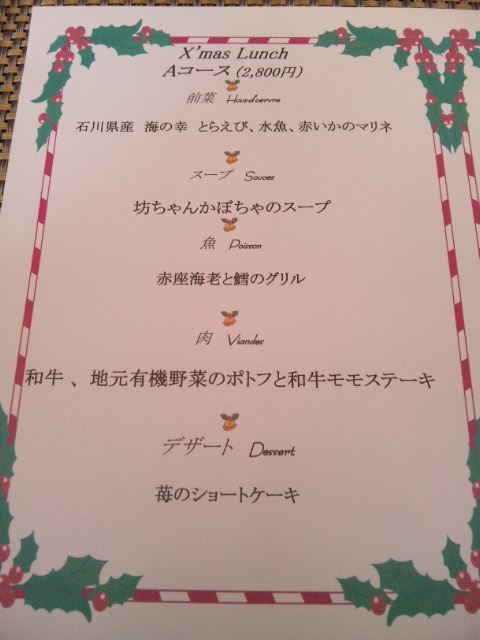 X'mas Lunch
Aコース(2,800円)
前菜 Hound'oeuvre
石川県産 海の幸 とらえび、水魚、赤いかのマリネ
スープ Souces
坊ちゃんかぼちゃのスープ
魚 Poisson
赤座海老と鱈のグリル
肉 Viandes
和牛 、地元有機野菜のポトフと和牛モモステーキ
デザート Dessert
苺のショートケーキ